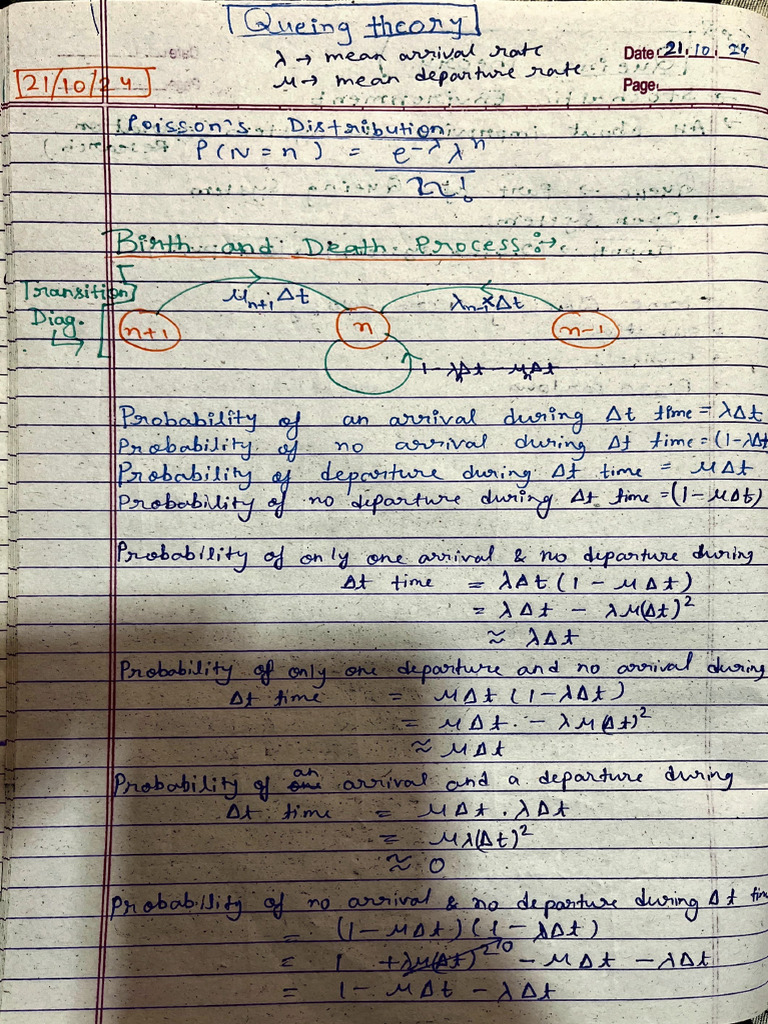 Queing theory
λ → mean arrival rate
Date 21.10.24
μ → mean departure rate
21/10/24
Page
Poisson's Distribution
P(N = n) = e^-λ λ^n / n!
Birth and Death Process :→
Transition
Diag.
μn+1 Δt
λn-1 × Δt
n+1
n
n-1
1 - λnΔt - μnΔt
Probability of an arrival during Δt time = λΔt
Probability of no arrival during Δt time = (1-λΔt
Probability of departure during Δt time = μΔt
Probability of no departure during Δt time = (1-μΔt)
Probability of only one arrival & no departure during
Δt time = λΔt (1 - μΔt)
= λΔt - λμ(Δt)²
≈ λΔt
Probability of only one departure and no arrival during
Δt time = μΔt (1-λΔt)
= μΔt. - λμ(Δt)²
≈ μΔt
Probability of an arrival and a departure during
Δt time = μΔt . λΔt
= μλ(Δt)²
≈ 0
Probability of no arrival & no departure during Δt time
= (1-μΔt)(1-λΔt)
= 1 + λμ(Δt)² 0 - μΔt - λΔt
= 1 - μΔt - λΔt